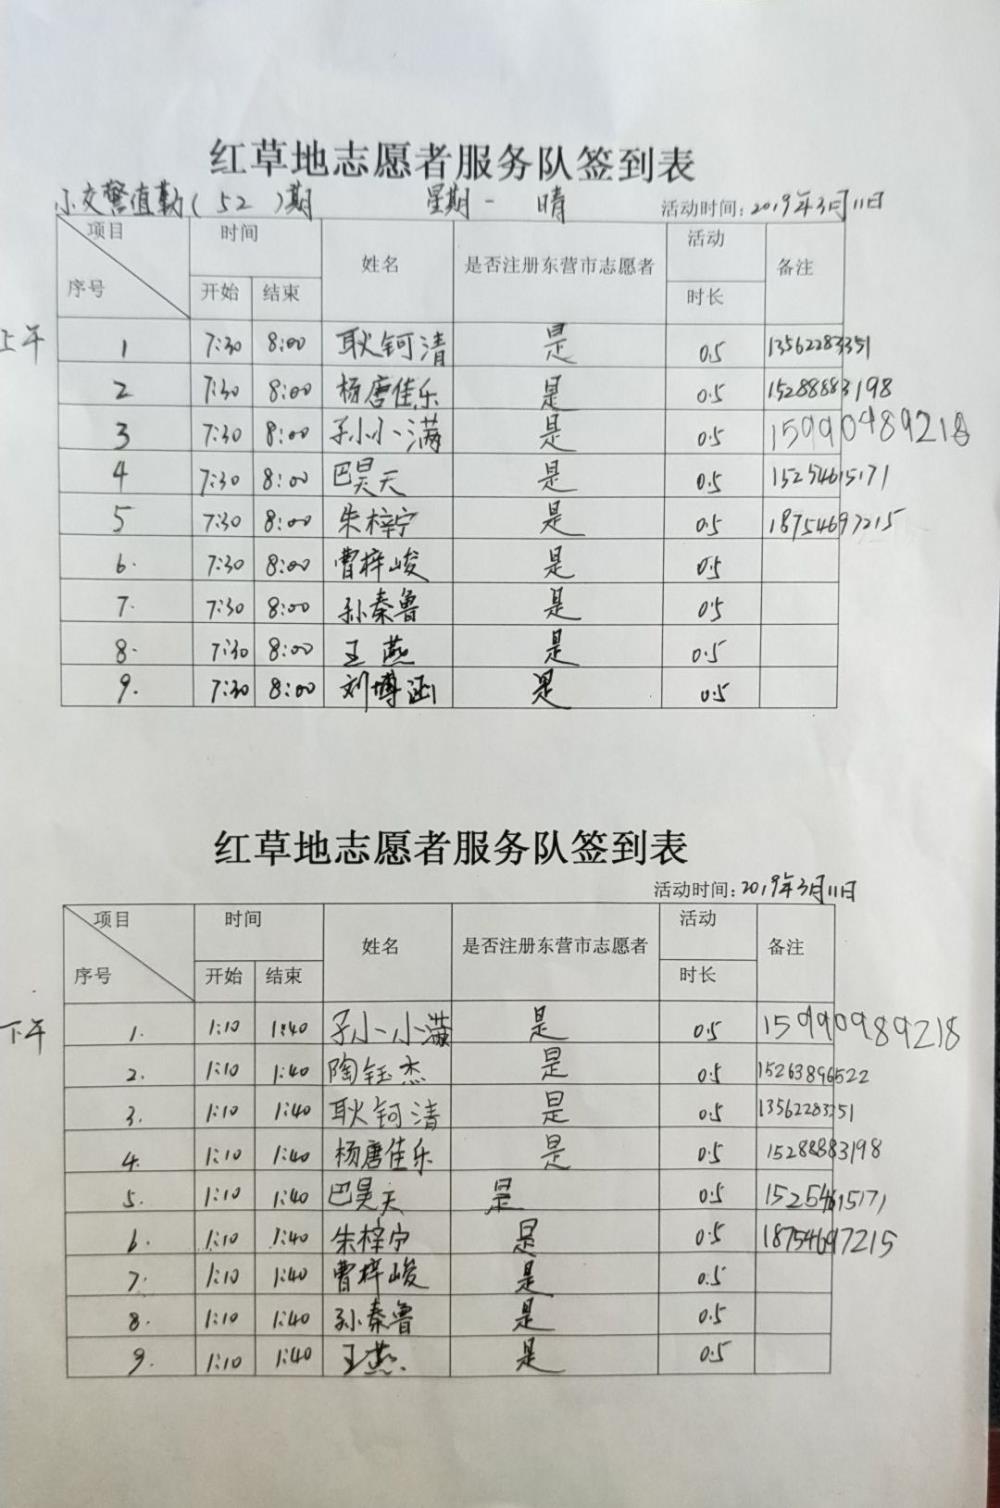 红草地志愿者服务队签到表
小交警值勤(52)期 星期一 晴 活动时间:2019年3月11日
项目 时间 姓名 是否注册东营市志愿者 活动 备注
序号 开始 结束 时长
上午 1 7:30 8:00 耿钶清 是 0.5 13562283351
2 7:30 8:00 杨唐佳乐 是 0.5 15288883198
3 7:30 8:00 孙小小满 是 0.5 15990989218
4 7:30 8:00 巴昊天 是 0.5 15254615171
5 7:30 8:00 朱梓宁 是 0.5 18754697215
6. 7:30 8:00 曹梓峻 是 0.5
7. 7:30 8:00 孙秦鲁 是 0.5
8. 7:30 8:00 王燕 是 0.5
9. 7:30 8:00 刘博涵 是 0.5
红草地志愿者服务队签到表
活动时间:2019年3月11日
项目 时间 姓名 是否注册东营市志愿者 活动 备注
序号 开始 结束 时长
下午 1. 1:10 1:40 孙小小满 是 0.5 15990989218
2. 1:10 1:40 陶钰杰 是 0.5 15263896522
3. 1:10 1:40 耿钶清 是 0.5 13562283351
4. 1:10 1:40 杨唐佳乐 是 0.5 15288883198
5. 1:10 1:40 巴昊天 是 0.5 15254615171
6. 1:10 1:40 朱梓宁 是 0.5 18754697215
7. 1:10 1:40 曹梓峻 是 0.5
8. 1:10 1:40 孙秦鲁 是 0.5
9. 1:10 1:40 王燕. 是 0.5